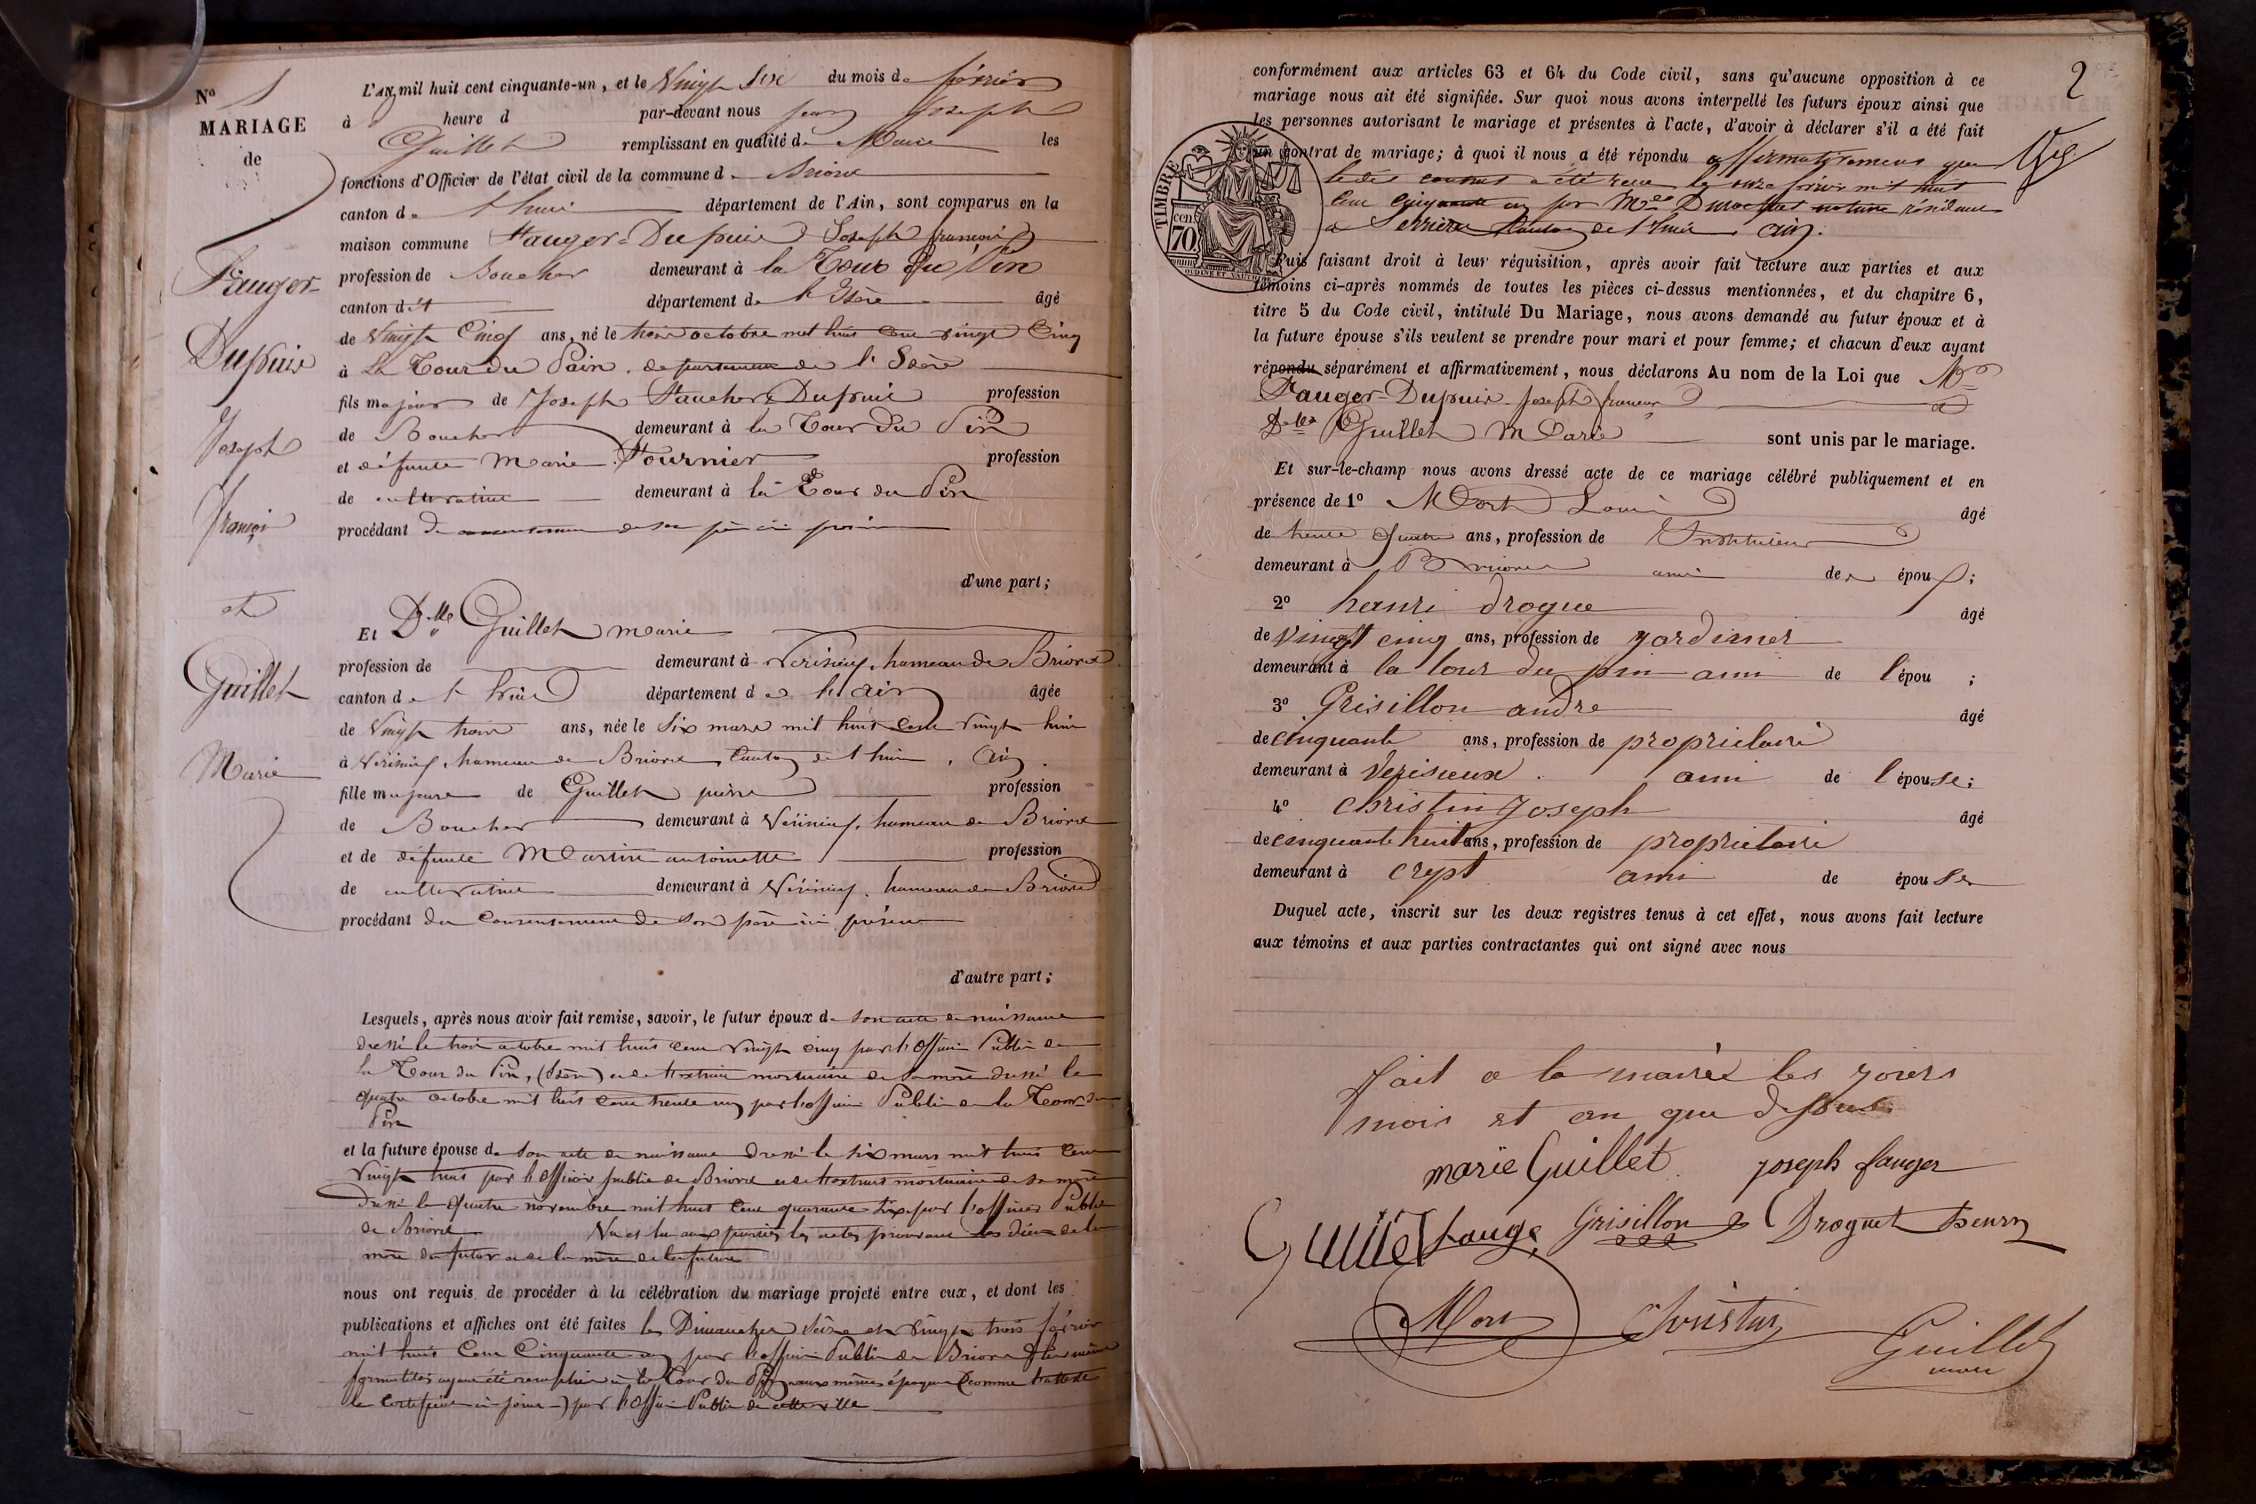 N° 1
MARIAGE
de
Fauger-
Dupuis
Joseph
françois
et
Guillet
Marie
L'AN mil huit cent cinquante-un, et le Vingt Six du mois de février
à heure d par-devant nous Jean Joseph
Guillet remplissant en qualité de Maire les
fonctions d'Officier de l'état civil de la commune de Briord
canton de Lhuis département de l'Ain, sont comparus en la
maison commune Fauger-Dupuis Joseph françois
profession de Boucher demeurant à la Tour du Pin
canton d département de l'Isère âgé
de Vingt Cinq ans, né le trois octobre mil huit cent vingt Cinq
à La Tour du Pain, département de l'Isère
fils majeur de Joseph Faucher Dupuis profession
de Boucher demeurant à la Tour du Pin
et défunte Marie Fournier profession
de cultivatrice demeurant à la Tour du Pin
procédant du consentement de son père ici présent
d'une part;
Et Dlle Guillet marie
profession de demeurant à Vérisieux, hameau de Briord
canton de Lhuis département de l'Ain âgée
de Vingt trois ans, née le Six mars mil huit cent vingt huit
à Vérisieux, hameau de Briord, Canton de Lhuis, Ain.
fille majeure de Guillet pierre profession
de Boucher demeurant à Vérisieux, hameau de Briord
et de défunte Martin antoinette profession
de cultivatrice demeurant à Vérisieux, hameau de Briord
procédant du Consentement de son père ici présent
d'autre part;
Lesquels, après nous avoir fait remise, savoir, le futur époux de son acte de naissance
dressé le trois octobre mil huit cent vingt cinq par l'officier Public de
la Tour du Pin, (Isère) et de l'extrait mortuaire de sa mère dressé le
quatre octobre mil huit cent trente un par l'officier Public de la Tour du
Pin
et la future épouse de son acte de naissance dressé le six mars mil huit cent
vingt huit par l'officier public de Briord et de l'extrait mortuaire de sa mère
dressé le quatre novembre mil huit cent quarante six par l'officier Public
de Briord Vu et lu aux parties les actes prouvant les décès de la
mère du futur et de la mère de la future
nous ont requis de procéder à la célébration du mariage projeté entre eux, et dont les
publications et affiches ont été faites les Dimanches Seize et vingt trois février
mil huit Cent Cinquante un par l'officier Public de Briord les mêmes
formalités ayant été remplies à la Tour du Pin aux mêmes époques (comme l'atteste
le certificat ci-joint) par l'officier Public de cette ville
2
conformément aux articles 63 et 64 du Code civil, sans qu'aucune opposition à ce
mariage nous ait été signifiée. Sur quoi nous avons interpellé les futurs époux ainsi que
les personnes autorisant le mariage et présentes à l'acte, d'avoir à déclarer s'il a été fait
un contrat de mariage; à quoi il nous a été répondu affirmativement que
le dit contrat a été reçu le onze février mil huit
cent cinquante un par Me notaire résidant
à Serrières Canton de Lhuis Ain.
TIMBRE
70
cen
Puis faisant droit à leur réquisition, après avoir fait lecture aux parties et aux
témoins ci-après nommés de toutes les pièces ci-dessus mentionnées, et du chapitre 6,
titre 5 du Code civil, intitulé Du Mariage, nous avons demandé au futur époux et à
la future épouse s'ils veulent se prendre pour mari et pour femme; et chacun d'eux ayant
répondu séparément et affirmativement, nous déclarons Au nom de la Loi que Mr
Fauger-Dupuis Joseph françois et
Delle Guillet Marie sont unis par le mariage.
Et sur-le-champ nous avons dressé acte de ce mariage célébré publiquement et en
présence de 1° Mort Louis âgé
de trente quatre ans, profession de Instituteur
demeurant à Briord ami des époux;
2° henri drogue âgé
de vingt cinq ans, profession de jardinier
demeurant à la tour du pin ami de l'épou ;
3° Grisillon andre âgé
de cinquante ans, profession de proprietaire
demeurant à Verisieux. ami de l'épouse;
4° Christin Joseph âgé
de cinquante huit ans, profession de proprietaire
demeurant à crept ami de épouse
Duquel acte, inscrit sur les deux registres tenus à cet effet, nous avons fait lecture
aux témoins et aux parties contractantes qui ont signé avec nous
fait a la mairie les jours
mois et an que dessus
marie Guillet joseph fauger
Guillet fauge Grisillon Droguet henry
Mort Christin Guillet
maire